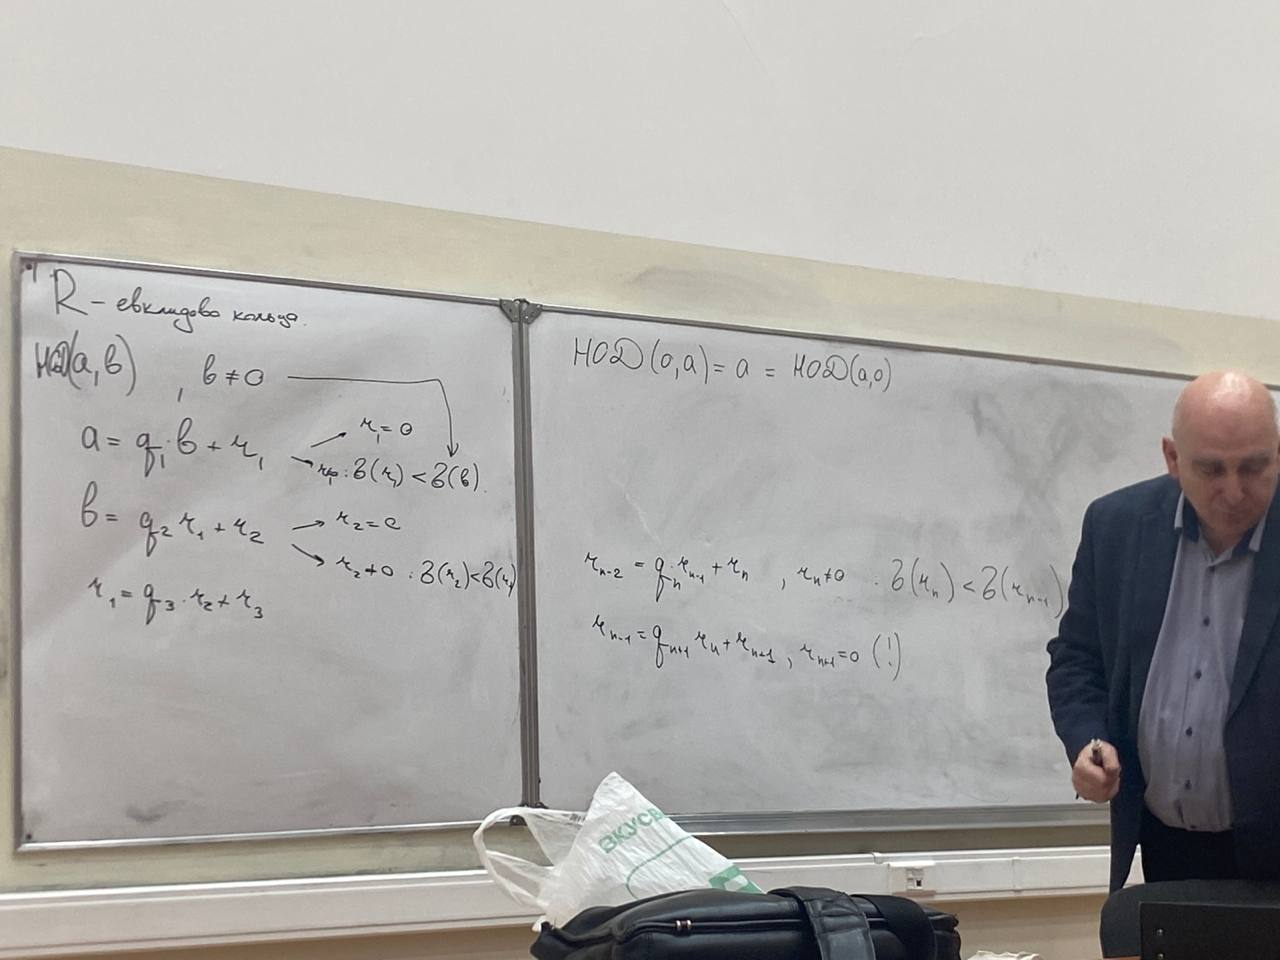 R – евклидово кольцо.
НОД(a, b) , b ≠ 0
a = q₁·b + r₁
r₁ = 0
r₁≠0 : δ(r₁) < δ(b).
b = q₂ r₁ + r₂
r₂ = 0
r₂ ≠ 0 : δ(r₂) < δ(r₁)
r₁ = q₃·r₂ + r₃
НОД(0, a) = a = НОД(a, 0)
rₙ₋₂ = qₙ·rₙ₋₁ + rₙ , rₙ ≠ 0 : δ(rₙ) < δ(rₙ₋₁)
rₙ₋₁ = qₙ₊₁ rₙ + rₙ₊₁ , rₙ₊₁ = 0 (!)
ВКУСВ